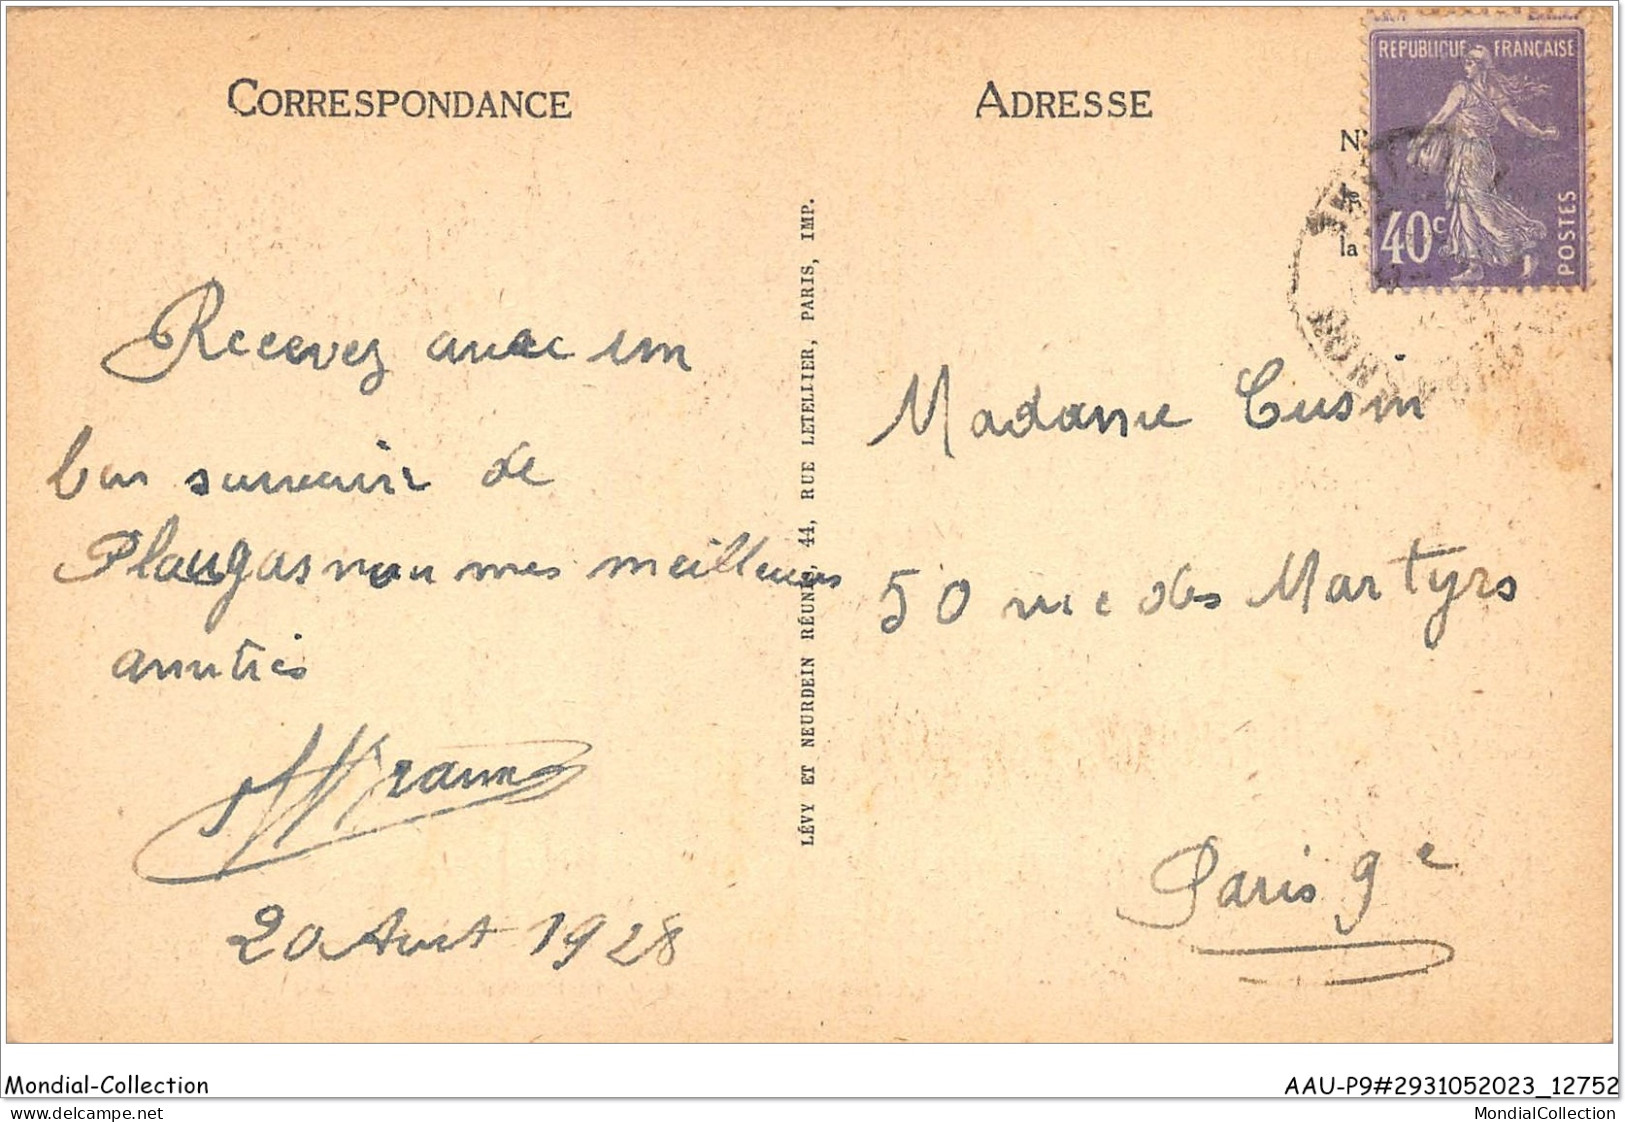 CORRESPONDANCE
Recevez avec un
bon souvenir de
Plougasnou mes meilleures
amitiés
20 Aout 1928
LÉVY ET NEURDEIN RÉUNIS, 44, RUE LETELLIER, PARIS, IMP.
ADRESSE
N°
le
la
REPUBLIQUE FRANÇAISE
40c
POSTES
Madame Cusin
50 rue des Martyrs
Paris 9e
Mondial-Collection
AAU-P9#2931052023_12752
delcampe.net
MondialCollection